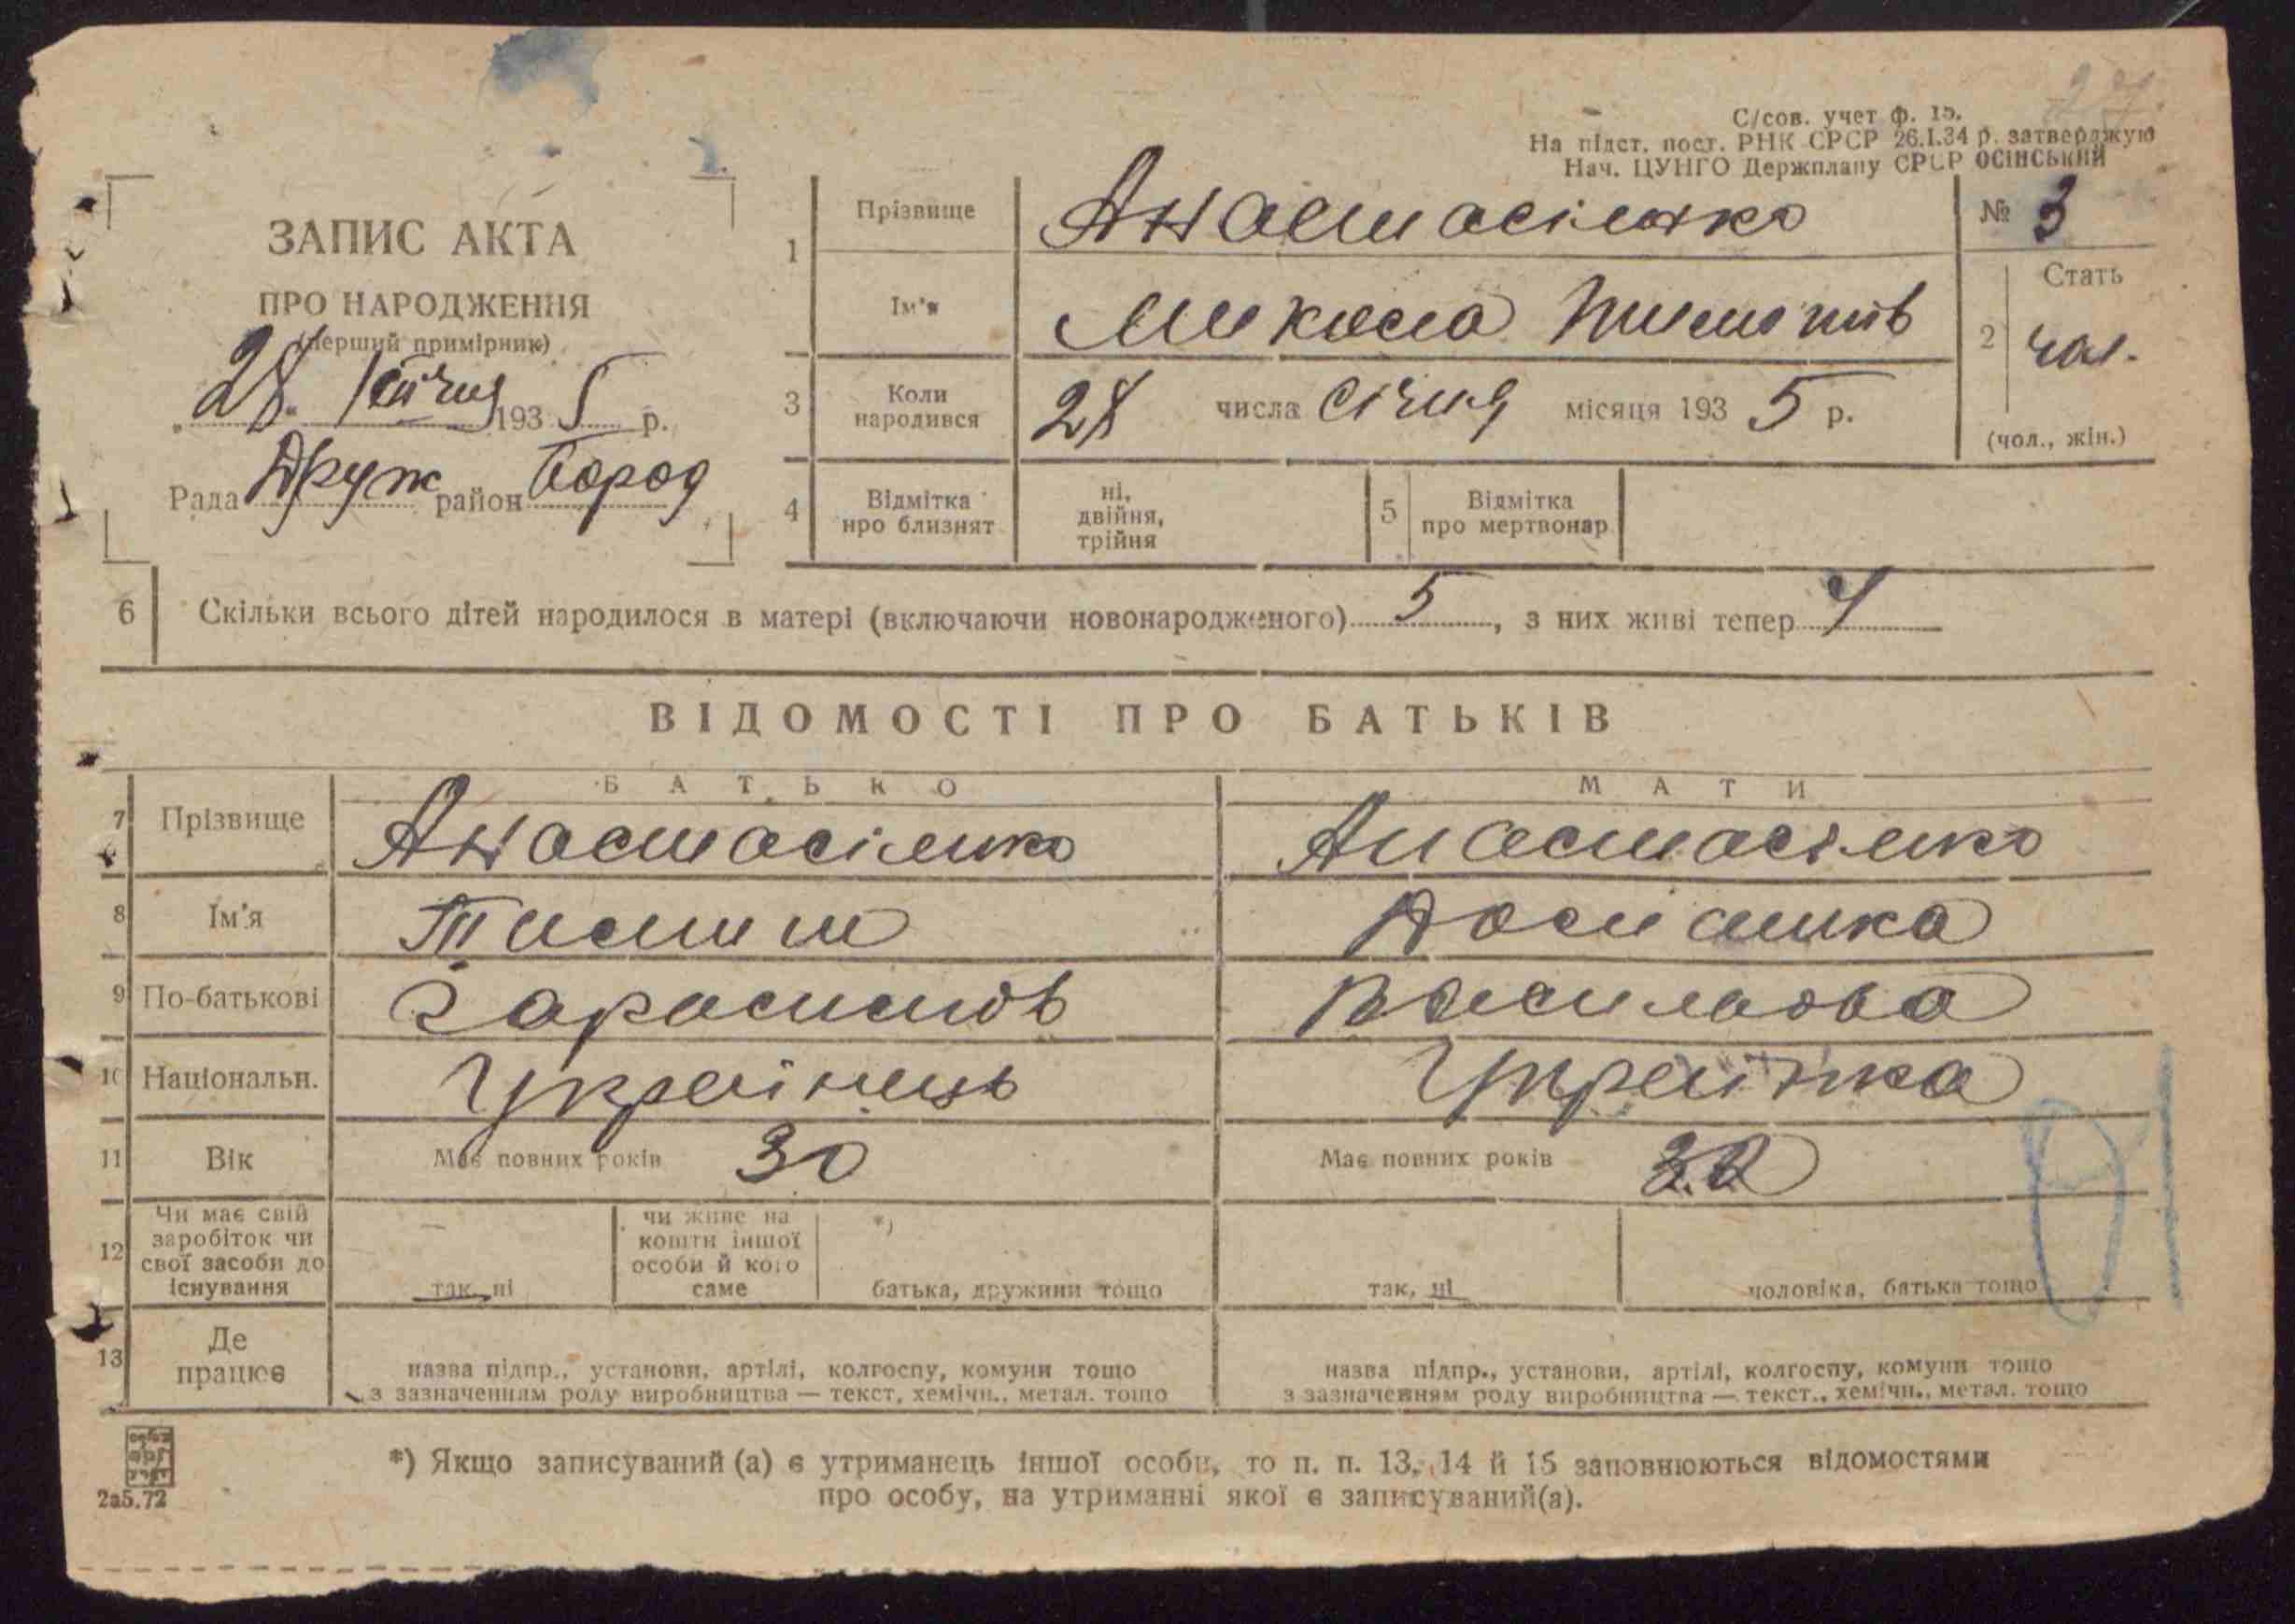 С/сов. учет ф. 15.
На підст. пост. РНК СРСР 26.I.34 р. затверджую
Нач. ЦУНГО Держплану СРСР ОСІНСЬКИЙ
ЗАПИС АКТА
ПРО НАРОДЖЕННЯ
(перший примірник)
28 січня 1935 р.
Рада Друж район Бород
1 Прізвище Анастасієнко № 3
Ім'я Микола
2 Стать чол.
(чол., жін.)
3 Коли народився 28 числа січня місяця 1935 р.
4 Відмітка про близнят ні, двійня, трійня
5 Відмітка про мертвонар
6 Скільки всього дітей народилося в матері (включаючи новонародженого) 5, з них живі тепер 4
ВІДОМОСТІ ПРО БАТЬКІВ
БАТЬКО МАТИ
7 Прізвище Анастасієнко Анастасієнко
8 Ім'я
9 По-батькові Гарасимов Василова
10 Національн. Українець Українка
11 Вік Має повних років 30 Має повних років
12 Чи має свій заробіток чи свої засоби до існування так, ні чи живе на кошти іншої особи й кого саме *) батька, дружини тощо так, ні чоловіка, батька тощо
13 Де працює назва підпр., установи, артілі, колгоспу, комуни тощо з зазначенням роду виробництва — текст, хемічн., метал. тощо назва підпр., установи, артілі, колгоспу, комуни тощо з зазначенням роду виробництва — текст., хемічн., метал. тощо
*) Якщо записуваний (а) є утриманець іншої особи, то п. п. 13, 14 й 15 заповнюються відомостями
про особу, на утриманні якої є записуваний(а).
2а5.72